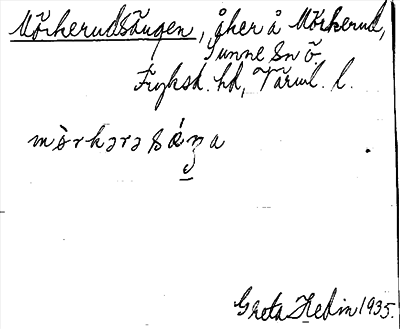 Mörkerudsängen, åker å Mörkerud,
Sunne sn ö.
Fryksd. hd, Värml. l.
mò̤rkərəsáŋa
Greta Hedin 1935.